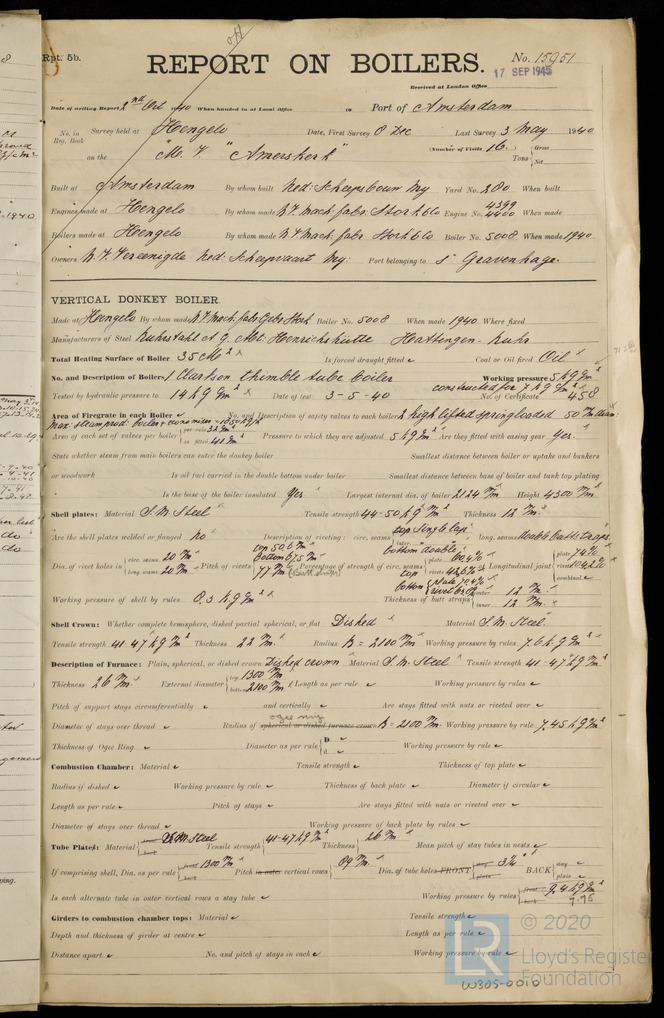 Rpt. 5b.
REPORT ON BOILERS.
No. 15951
17 SEP 1945
Received at London Office
Date of writing Report 2nd Oct 1940 When handed in at Local Office 10 Port of Amsterdam
No. in Reg. Book Survey held at Hengelo Date, First Survey 8 Dec Last Survey 3 May 1940
(Number of Visits 16.)
on the "M. V. "Amerskerk" Tons Gross Net
Built at Amsterdam By whom built Ned: Scheepsbouw My Yard No. 280 When built
Engines made at Hengelo By whom made N.V. Mach: fabr. Stork & Co Engine No. 4399 4400 When made
Boilers made at Hengelo By whom made N.V. Mach: fabr Stork & Co Boiler No. 5008 When made 1940
Owners N.V. Vereenigde Ned: Scheepvaart My. Port belonging to s' Gravenhage.
VERTICAL DONKEY BOILER.
Made at Hengelo By whom made N.V. Mach: fabr Gebr Stork Boiler No. 5008 When made 1940 Where fixed
Manufacturers of Steel Ruhrstahl A G. Abt. Henrichshütte Hattingen-Ruhr
Total Heating Surface of Boiler 35 M2 Is forced draught fitted Coal or Oil fired Oil
No. and Description of Boilers 1 Clarkson thimble tube boiler Working pressure 5 kg/cm2
constructed for 7 kg/cm2
Tested by hydraulic pressure to 14 kg/cm2 Date of test 3-5-40 No. of Certificate 458
Area of Firegrate in each Boiler No. and Description of safety valves to each boiler 2 high lifted spring loaded 50 m/m diam:
Area of each set of valves per boiler per rule as fitted Pressure to which they are adjusted 5 kg/cm2 Are they fitted with easing gear Yes.
State whether steam from main boilers can enter the donkey boiler Smallest distance between boiler or uptake and bunkers
or woodwork Is oil fuel carried in the double bottom under boiler Smallest distance between base of boiler and tank top plating
Is the base of the boiler insulated Yes Largest internal dia. of boiler 2124 m/m Height 4300 m/m
Shell plates: Material S.M. Steel Tensile strength 44-50 kg/m Thickness 12 m/m
Are the shell plates welded or flanged No Description of riveting: circ. seams top Single lap. bottom double long. seams double butt straps.
Dia. of rivet holes in circ. seams 20 m/m long. seams 20 m/m Pitch of rivets top 50,6 m/m bottom 67,5 m/m 77 m/m Percentage of strength of circ. seams plate rivets Longitudinal joint plate 74% rivets combined
Working pressure of shell by rules 8.3 kg/cm2 Thickness of butt straps outer 12 m/m inner 12 m/m
Shell Crown: Whether complete hemisphere, dished partial spherical, or flat Dished Material S.M. Steel
Tensile strength 41-47 kg/m Thickness 22 m/m Radius R = 2100 m/m Working pressure by rules 7.6 kg/cm2
Description of Furnace: Plain, spherical, or dished crown Dished crown Material S.M. Steel Tensile strength 41-47 kg/m
Thickness 26 m/m External diameter top 1300 m/m bottom 2100 m/m Length as per rule Working pressure by rules
Pitch of support stays circumferentially and vertically Are stays fitted with nuts or riveted over
Diameter of stays over thread Radius of spherical or dished furnace crown R = 2100 m/m Working pressure by rule 7.45 kg/cm2
Thickness of Ogee Ring Diameter as per rule D d Working pressure by rule
Combustion Chamber: Material Tensile strength Thickness of top plate
Radius if dished Working pressure by rule Thickness of back plate Diameter if circular
Length as per rule Pitch of stays Are stays fitted with nuts or riveted over
Diameter of stays over thread Working pressure of back plate by rules
Tube Plates: Material front back S.M. Steel Tensile strength 41-47 kg/m Thickness 26 m/m Mean pitch of stay tubes in nests
If comprising shell, Dia. as per rule front back 1300 m/m Pitch in outer vertical rows 89 m/m Dia. of tube holes FRONT stay plate BACK stay plate
Is each alternate tube in outer vertical rows a stay tube Working pressure by rules front back
Girders to combustion chamber tops: Material Tensile strength
Depth and thickness of girder at centre Length as per rule
Distance apart No. and pitch of stays in each Working pressure by rule
© 2020
Lloyd's Register
Foundation
W305-0010